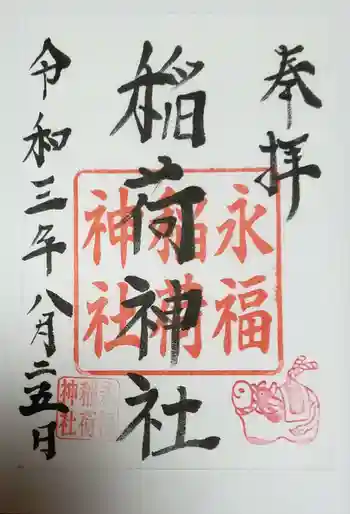 奉拝
稲荷神社
令和三年八月二五日
永福
稲荷
神社
稲荷
神社